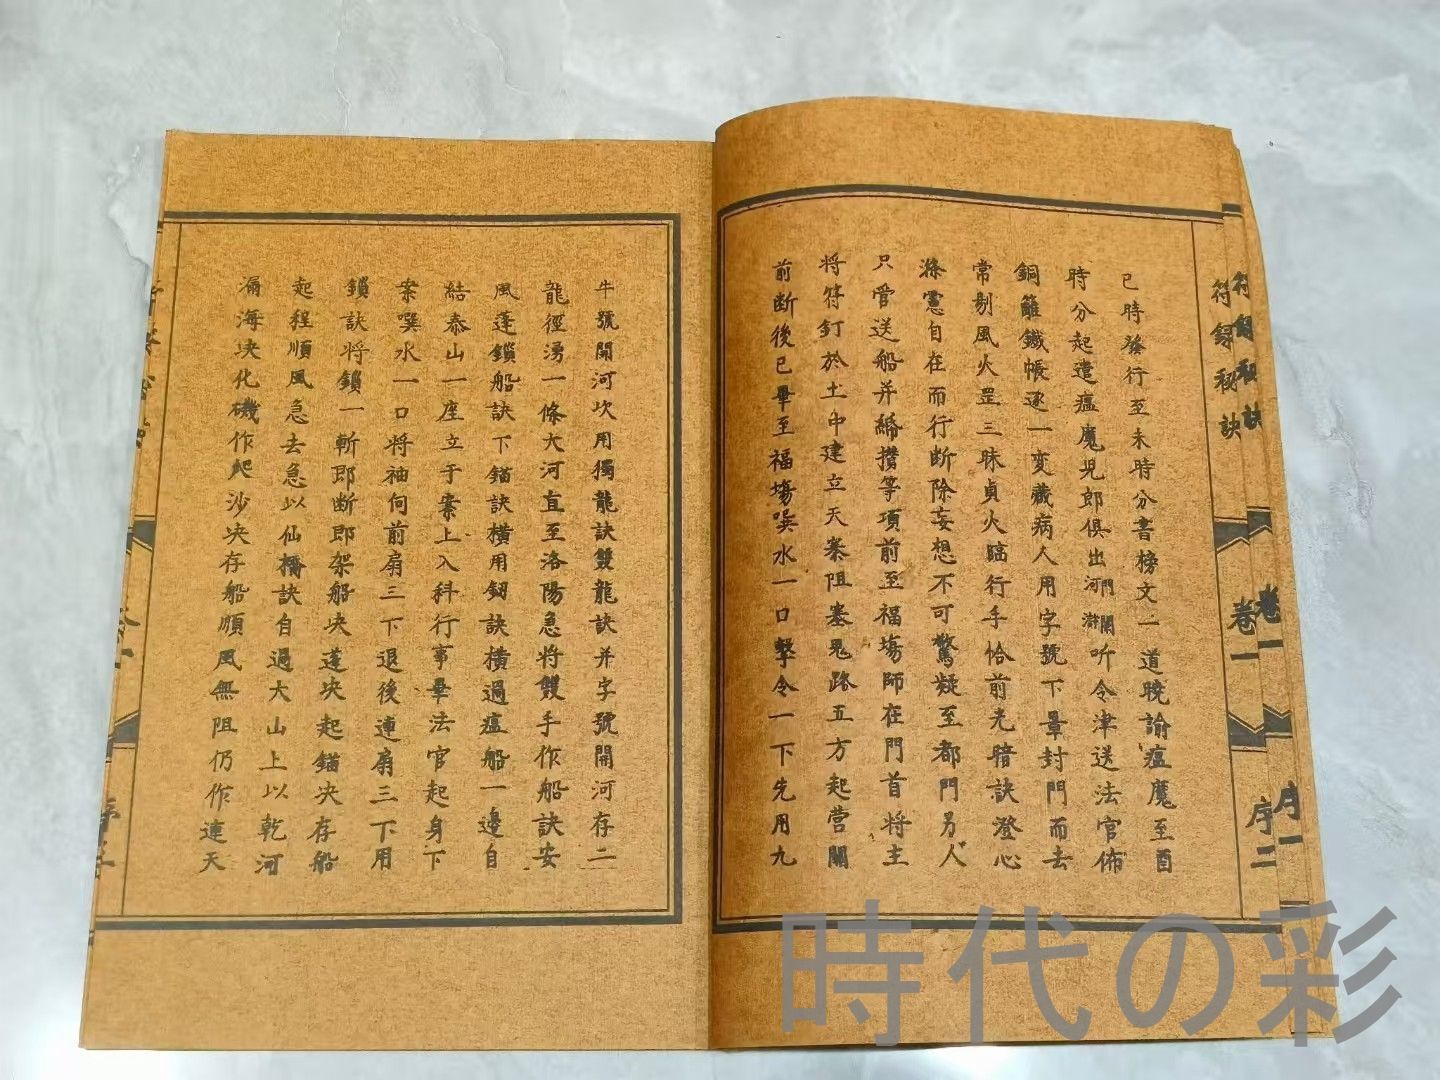 符籙秘訣 卷一 序一
符籙秘訣 卷一 序二
巳時發行至未時分書榜文一道曉諭瘟魔至酉
時分起遣瘟魔兒郎俱出河間聽令津送法官佈
銅籬鐵帳逐一變藏病人用字號下罩封門而去
常剔風火罡三昧貞火臨行手恰前光暗訣澄心
滌慮自在而行斷除妄想不可驚疑至都門另人
只管送船并紙攢等項前至福塲師在門首將主
將符釘於土中建立天寨阻塞鬼路五方起营閞
前断後已畢至福塲噀水一口擊令一下先用九
牛號開河次用獨龍訣雙龍訣并字號開河存二
龍徑湧一條大河直至洛陽急將雙手作船訣安
風蓬鎖船訣下錨訣橫用釼訣橫過瘟船一邊自
結泰山一座立于案上入科行事畢法官起身下
案噀水一口將袖伺前扇三下退後連扇三下用
鎖訣将鎖一斬即断即架船块蓬块起錨央存船
起程順風急去急以仙橋訣自過大山上以乾河
漏海块化磯作爬沙块存船順風無阻仍作連天
時代の彩